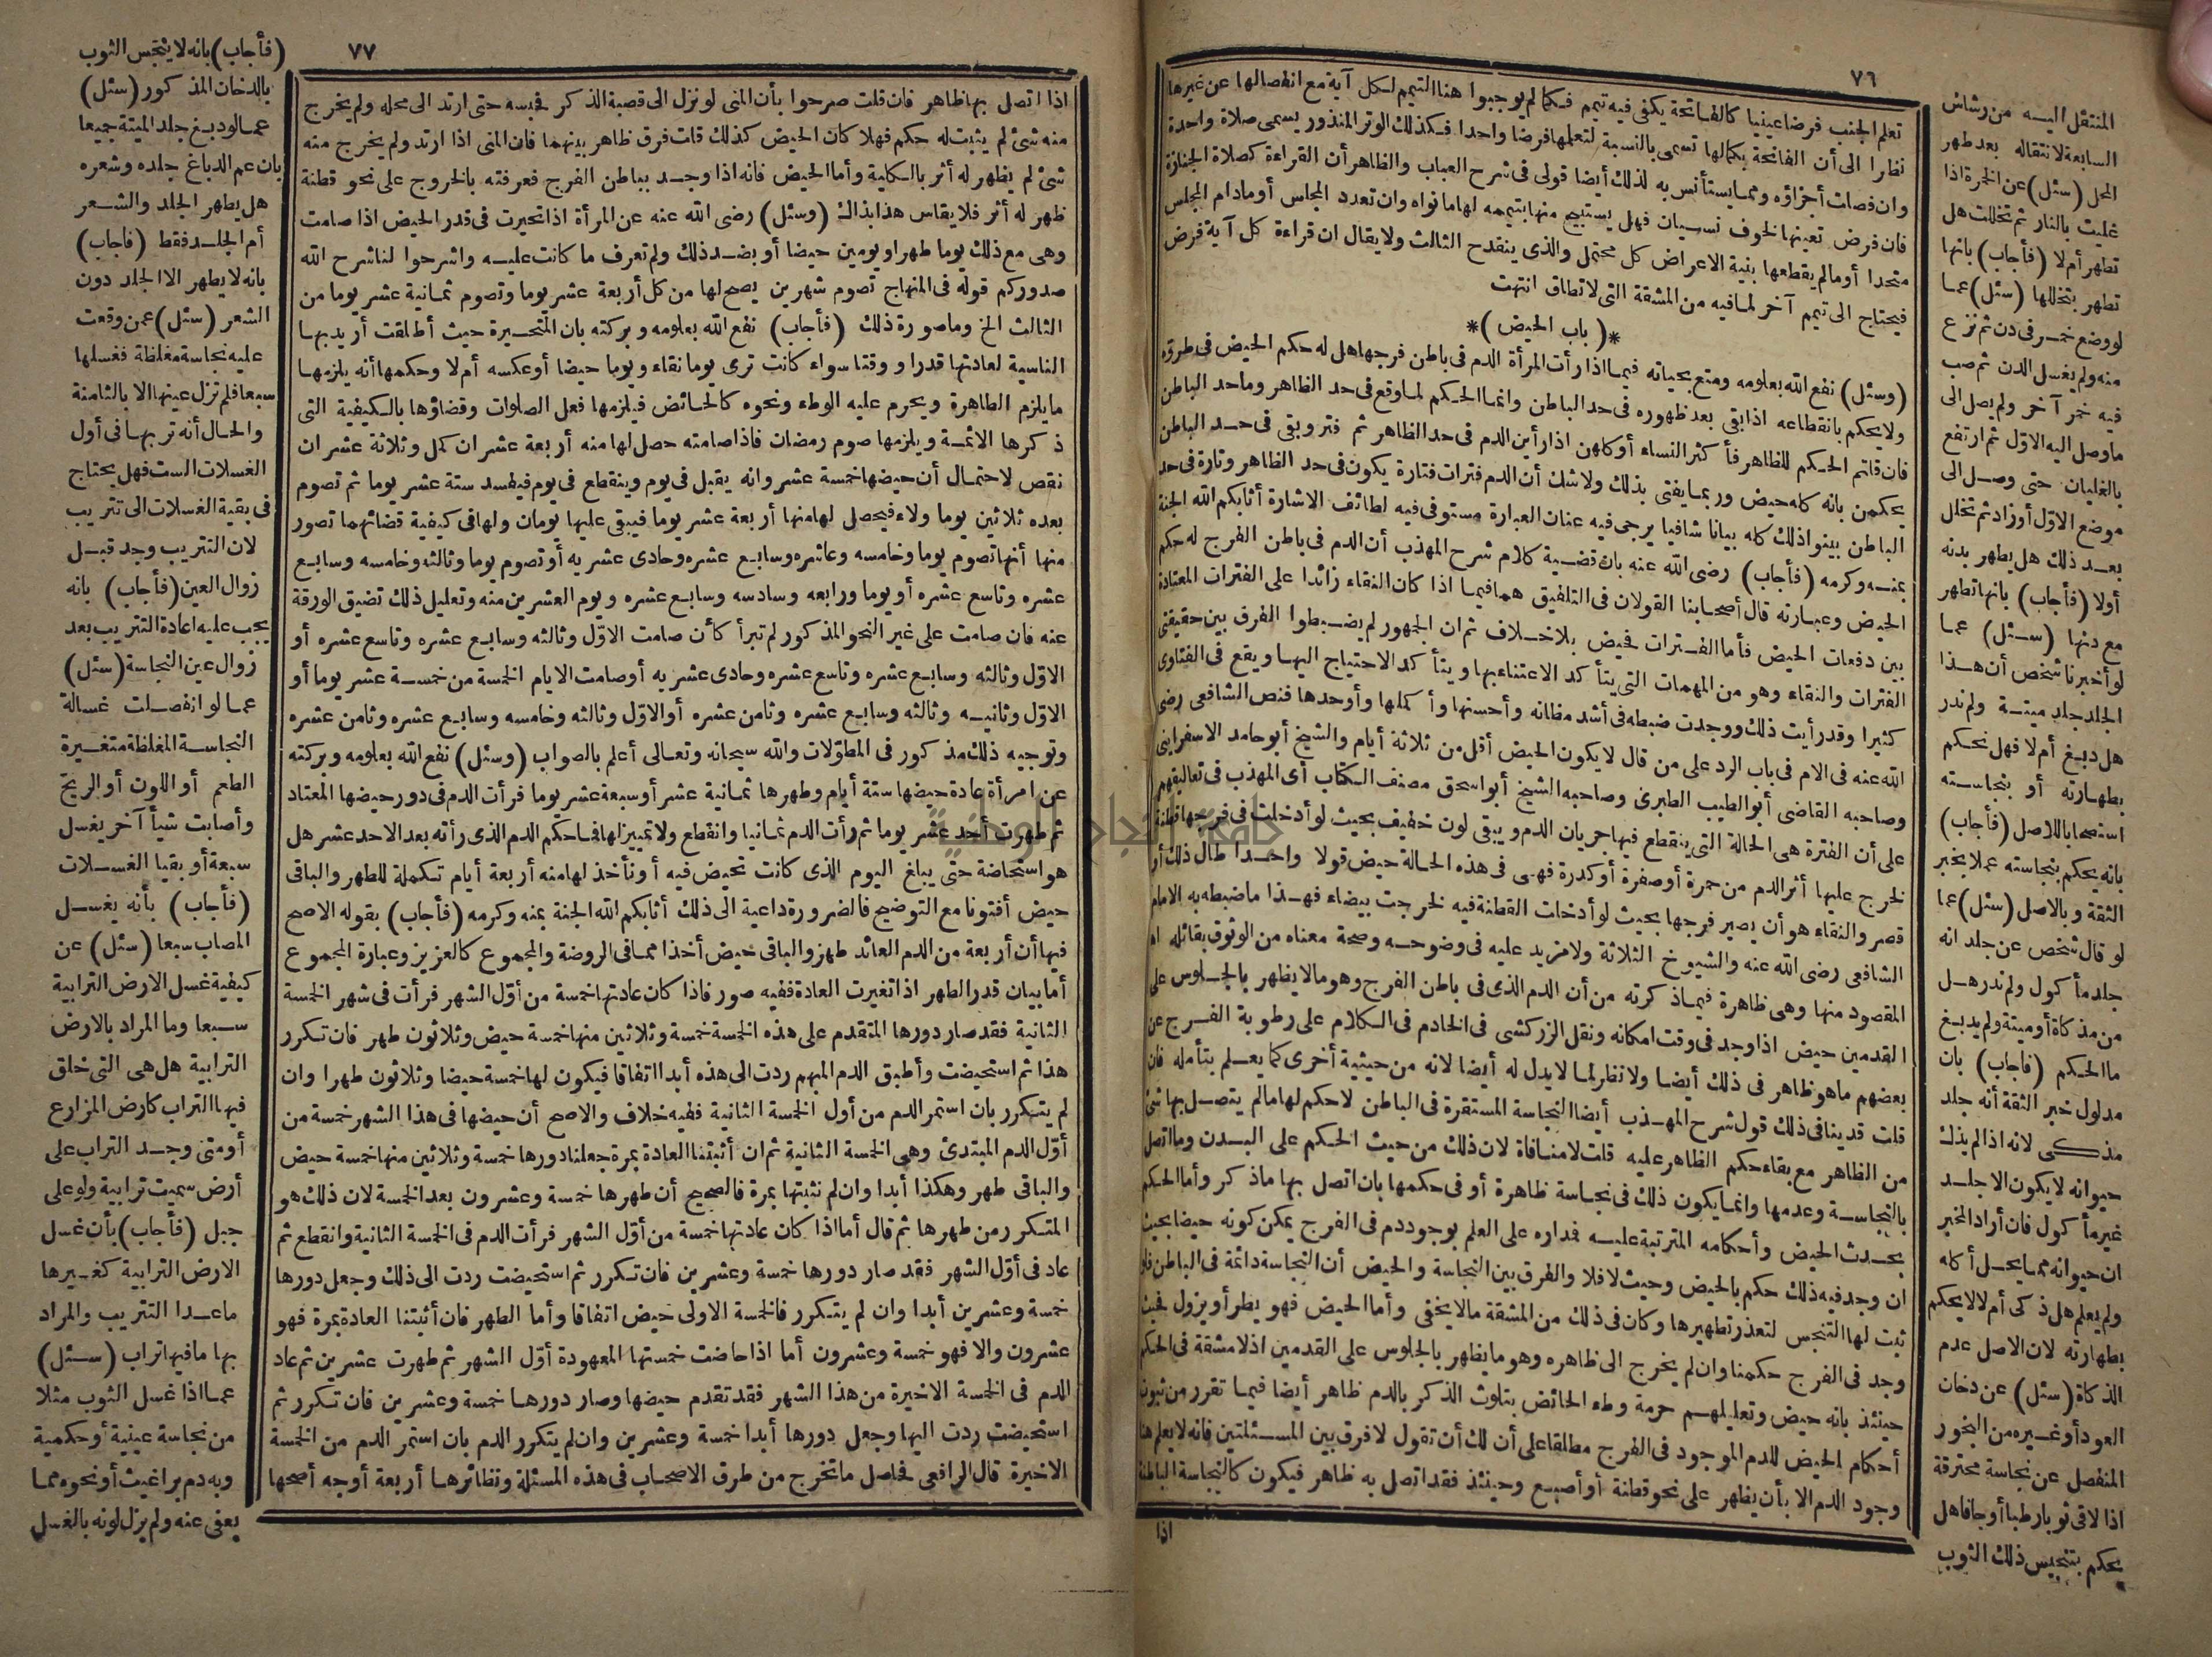 ٧٦
تعلم الجنب فرضا عينيا كالفاتحة يكفى فيه تيمم فكما لم يوجبوا هنا التيمم لكل آية مع انفصالها عن غيرها
نظرا الى أن الفاتحة بكمالها تسمى بالنسبة لتعلمها فرضا واحدا فكذلك الوتر المنذور يسمى صلاة واحدة
وان فصلت أجزاؤه ومما يستأنس به لذلك أيضا قولى فى شرح العباب والظاهر أن القراءة كصلاة الجنازة
فان فرض تعينها لخوف نسيان فهل يستبيح منها بتيممه لها ما نواه وان تعدد المجلس أو مادام المجلس
متحدا أو مالم يقطعها بنية الاعراض كل محتمل والذى ينقدح الثالث ولا يقال ان قراءة كل آية فرض
فيحتاج الى تيمم آخر لما فيه من المشقة التى لا تطاق انتهت
*( باب الحيض )*
(وسئل) نفع الله بعلومه ومتع بحياته فيما اذا رأت المرأة الدم فى باطن فرجها هل له حكم الحيض فى طروّه
ولا يحكم بانقطاعه اذا بقى بعد ظهوره فى حد الباطن وانما الحكم لما وقع فى حد الظاهر وما حد الباطن
فان قلتم الحكم للظاهر فأكثر النساء أو كلهن اذا رأين الدم فى حد الظاهر ثم فتر وبقى فى حد الباطن
يحكمن بانه كله حيض وربما يفتى بذلك ولا شك أن الدم فترات فتارة يكون فى حد الظاهر وتارة فى حد
الباطن بينوا ذلك كله بيانا شافيا يرجى فيه عنان العبارة مستوفى فيه لطائف الاشارة أثابكم الله الجنة
بمنه وكرمه (فأجاب) رضى الله عنه بان قضية كلام شرح المهذب أن الدم فى باطن الفرج له حكم
الحيض وعبارته قال أصحابنا القولان فى التلفيق هما فيما اذا كان النقاء زائدا على الفترات المعتادة
بين دفعات الحيض فأما الفترات فحيض بلا خلاف ثم ان الجمهور لم يضبطوا الفرق بين حقيقتى
الفترات والنقاء وهو من المهمات التى يتأكد الاعتناء بها ويتأكد الاحتياج اليها ويقع فى الفتاوى
كثيرا وقد رأيت ذلك ووجدت ضبطه فى أشد مظانه وأحسنها وأكملها وأوحدها فنص الشافعى رضى
الله عنه فى الام فى باب الرد على من قال لا يكون الحيض أقل من ثلاثة أيام والشيخ أبو حامد الاسفراينى
وصاحبه القاضى أبو الطيب الطبرى وصاحبه الشيخ أبو اسحق مصنف الكتاب أى المهذب فى تعاليقهم
على أن الفترة هى الحالة التى ينقطع فيها جريان الدم ويبقى لون خفيف بحيث لو أدخلت فى فرجها قطنة
لخرج عليها أثر الدم من حمرة أو صفرة أو كدرة فهى فى هذه الحالة حيض قولا واحدا طال ذلك أو
قصر والنقاء هو أن يصير فرجها بحيث لو أدخلت القطنة فيه لخرجت بيضاء فهذا ما ضبطه به الامام
الشافعى رضى الله عنه والشيوخ الثلاثة ولا مزيد عليه فى وضوحه وصحة معناه من الوثوق بقائله اه
المقصود منها وهى ظاهرة فيما ذكرته من أن الدم الذى فى باطن الفرج وهو مالا يظهر بالجلوس على
القدمين حيض اذا وجد فى وقت امكانه ونقل الزركشى فى الخادم فى الكلام على رطوبة الفرج عن
بعضهم ما هو ظاهر فى ذلك أيضا ولا نظر لما لا يدل له أيضا لانه من حيثية أخرى كما يعلم بتأمله فان
قلت قد ينافى ذلك قول شرح المهذب أيضا النجاسة المستقرة فى الباطن لا حكم لها مالم يتصل بها شئ
من الظاهر مع بقاء حكم الظاهر عليه قلت لا منافاة لان ذلك من حيث الحكم على البدن وما اتصل
بالنجاسة وعدمها وانما يكون ذلك فى نجاسة ظاهرة أو فى حكمها بان اتصل بها ما ذكر وأما الحكم
بحدث الحيض وأحكامه المترتبة عليه فمداره على العلم بوجود دم فى الفرج يمكن كونه حيضا بحيث
ان وجد فيه ذلك حكم بالحيض وحيث لا فلا والفرق بين النجاسة والحيض أن النجاسة دائمة فى الباطن فلو
ثبت لها التنجس لتعذر تطهيرها وكان فى ذلك من المشقة مالا يخفى وأما الحيض فهو يطرأ ويزول فحيث
وجد فى الفرج حكمنا وان لم يخرج الى ظاهره وهو ما يظهر بالجلوس على القدمين اذ لا مشقة فى الحكم
حينئذ بانه حيض وتعليلهم حرمة وطء الحائض بتلوث الذكر بالدم ظاهر أيضا فيما تقرر من ثبوت
أحكام الحيض للدم الموجود فى الفرج مطلقا على أن لك أن تقول لا فرق بين المسئلتين فانه لا يعلم هنا
وجود الدم الا بأن يظهر على نحو قطنة أو أصبع وحينئذ فقد اتصل به ظاهر فيكون كالنجاسة الباطنة
اذا
المنتقل اليه من رشاش
السابعة لانتقاله بعد طهر
المحل (سئل) عن الخمرة اذا
غليت بالنار ثم تخللت هل
تطهر أم لا (فأجاب) بانها
تطهر بتخللها (سئل) عما
لو وضع خمر فى دن ثم نزع
منه ولم يغسل الدن ثم صب
فيه خمر آخر ولم يصل الى
ما وصل اليه الاوّل ثم ارتفع
بالغليان حتى وصل الى
موضع الاوّل أو زاد ثم تخلل
بعد ذلك هل يطهر بدنه
أولا (فأجاب) بانها تطهر
مع دنها (سئل) عما
لو أخبرنا شخص أن هذا
الجلد جلد ميتة ولم ندر
هل دبغ أم لا فهل نحكم
بطهارته أو بنجاسته
استصحابا للاصل (فأجاب)
بانه يحكم بنجاسته عملا بخبر
الثقة وبالاصل (سئل) عما
لو قال شخص عن جلد انه
جلد مأكول ولم ندر هل
من مذكاة أو ميتة ولم يدبغ
ما الحكم (فأجاب) بان
مدلول خبر الثقة أنه جلد
مذكى لانه اذا لم يذك
حيوانه لا يكون الا جلد
غير مأكول فان أراد المخبر
ان حيوانه مما يحل أكله
ولم يعلم هل ذكى أم لا لا يحكم
بطهارته لان الاصل عدم
الذكاة (سئل) عن دخان
العود أو غيره من البخور
المنفصل عن نجاسة محترقة
اذا لاقى ثوبا رطبا أو جافا هل
يحكم بتنجيس ذلك الثوب
٧٧
اذا اتصل بها ظاهر فان قلت صرحوا بأن المنى لو نزل الى قصبة الذكر فحبسه حتى ارتد الى محله ولم يخرج
منه شئ لم يثبت له حكم فهلا كان الحيض كذلك قلت فرق ظاهر بينهما فان المنى اذا ارتد ولم يخرج منه
شئ لم يظهر له أثر بالكلية وأما الحيض فانه اذا وجد بباطن الفرج فعرفته بالخروج على نحو قطنة
ظهر له أثر فلا يقاس هذا بذاك (وسئل) رضى الله عنه عن المرأة اذا تحيرت فى قدر الحيض اذا صامت
وهى مع ذلك يوما طهرا ويومين حيضا أو بضد ذلك ولم تعرف ما كانت عليه واشرحوا لنا شرح الله
صدوركم قوله فى المنهاج تصوم شهرين يصح لها من كل أربعة عشر يوما وتصوم ثمانية عشر يوما من
الثالث الخ وما صورة ذلك (فأجاب) نفع الله بعلومه وبركته بان المتحيرة حيث أطلقت أريد بها
الناسية لعادتها قدرا ووقتا سواء كانت ترى يوما نقاء ويوما حيضا أو عكسه أم لا وحكمها أنه يلزمها
ما يلزم الطاهرة ويحرم عليه الوطء ونحوه كالحائض فيلزمها فعل الصلوات وقضاؤها بالكيفية التى
ذكرها الائمة ويلزمها صوم رمضان فاذا صامته حصل لها منه أربعة عشر ان كمل وثلاثة عشر ان
نقص لاحتمال أن حيضها خمسة عشر وانه يقبل فى يوم وينقطع فى يوم فيفسد ستة عشر يوما ثم تصوم
بعده ثلاثين يوما ولاء فيحصل لها منها أربعة عشر يوما فيبقى عليها يومان ولها فى كيفية قضائهما تصور
منها أنها تصوم يوما وخامسه وعاشره وسابع عشره وحادى عشريه أو تصوم يوما وثالثه وخامسه وسابع
عشره وتاسع عشره أو يوما ورابعه وسادسه وسابع عشره ويوم العشرين منه وتعليل ذلك تضيق الورقة
عنه فان صامت على غير النحو المذكور لم تبرأ كأن صامت الاوّل وثالثه وسابع عشره وتاسع عشره أو
الاوّل وثالثه وسابع عشره وتاسع عشره وحادى عشريه أو صامت الايام الخمسة من خمسة عشر يوما أو
الاوّل وثانيه وثالثه وسابع عشره وثامن عشره أو الاوّل وثالثه وخامسه وسابع عشره وثامن عشره
وتوجيه ذلك مذكور فى المطوّلات والله سبحانه وتعالى أعلم بالصواب (وسئل) نفع الله بعلومه وبركته
عن امرأة عادة حيضها ستة أيام وطهرها ثمانية عشر أو سبعة عشر يوما فرأت الدم فى دور حيضها المعتاد
ثم طهرت أحد عشر يوما ثم رأت الدم ثمانيا وانقطع ولا تمييز لها فما حكم الدم الذى رأته بعد الاحد عشر هل
هو استحاضة حتى يبلغ اليوم الذى كانت تحيض فيه أو نأخذ لها منه أربعة أيام تكملة للطهر والباقى
حيض أفتونا مع التوضيح فالضرورة داعية الى ذلك أثابكم الله الجنة بمنه وكرمه (فأجاب) بقوله الاصح
فيها أن أربعة من الدم العائد طهر والباقى حيض أخذا مما فى الروضة والمجموع كالعزيز وعبارة المجموع
أما بيان قدر الطهر اذا تغيرت العادة ففيه صور فاذا كان عادتها خمسة من أوّل الشهر فرأت فى شهر الخمسة
الثانية فقد صار دورها المتقدم على هذه الخمسة خمسة وثلاثين منها خمسة حيض وثلاثون طهر فان تكرر
هذا ثم استحيضت وأطبق الدم المبهم ردت الى هذه أبدا اتفاقا فيكون لها خمسة حيضا وثلاثون طهرا وان
لم يتكرر بان استمر الدم من أول الخمسة الثانية ففيه خلاف والاصح أن حيضها فى هذا الشهر خمسة من
أوّل الدم المبتدئ وهى الخمسة الثانية ثم ان أثبتنا العادة بمرة جعلنا دورها خمسة وثلاثين منها خمسة حيض
والباقى طهر وهكذا أبدا وان لم نثبتها بمرة فالصحيح أن طهرها خمسة وعشرون بعد الخمسة لان ذلك هو
المتكرر من طهرها ثم قال أما اذا كان عادتها خمسة من أوّل الشهر فرأت الدم فى الخمسة الثانية وانقطع ثم
عاد فى أوّل الشهر فقد صار دورها خمسة وعشرين فان تكرر ثم استحيضت ردت الى ذلك وجعل دورها
خمسة وعشرين أبدا وان لم يتكرر فالخمسة الاولى حيض اتفاقا وأما الطهر فان أثبتنا العادة بمرة فهو
عشرون والا فهو خمسة وعشرون أما اذا حاضت خمستها المعهودة أوّل الشهر ثم طهرت عشرين ثم عاد
الدم فى الخمسة الاخيرة من هذا الشهر فقد تقدم حيضها وصار دورها خمسة وعشرين فان تكرر ثم
استحيضت ردت اليها وجعل دورها أبدا خمسة وعشرين وان لم يتكرر الدم بان استمر الدم من الخمسة
الاخيرة قال الرافعى فحاصل ما تخرج من طرق الاصحاب فى هذه المسئلة ونظائرها أربعة أوجه أصحها
(فأجاب) بانه لا ينجس الثوب
بالدخان المذكور (سئل)
عما لو دبغ جلد الميتة جميعا
بان عم الدباغ جلده وشعره
هل يطهر الجلد والشعر
أم الجلد فقط (فأجاب)
بانه لا يطهر الا الجلد دون
الشعر (سئل) عمن وقعت
عليه نجاسة مغلظة فغسلها
سبعا فلم تزل عينها الا بالثامنة
والحال أنه تربها فى أول
الغسلات الست فهل يحتاج
فى بقية الغسلات الى تتريب
لان التتريب وجد قبل
زوال العين (فأجاب) بانه
يجب عليه اعادة التتريب بعد
زوال عين النجاسة (سئل)
عما لو انفصلت غسالة
النجاسة المغلظة متغيرة
الطعم أو اللون أو الريح
وأصابت شيأ آخر يغسل
سبعة أو بقيا الغسلات
(فأجاب) بأنه يغسل
المصاب سبعا (سئل) عن
كيفية غسل الارض الترابية
سبعا وما المراد بالارض
الترابية هل هى التى خلق
فيها التراب كارض المزارع
أو متى وجد التراب على
أرض سميت ترابية ولو على
جبل (فأجاب) بأن غسل
الارض الترابية كغيرها
ما عدا التتريب والمراد
بها ما فيها تراب (سئل)
عما اذا غسل الثوب مثلا
من نجاسة عينية أو حكمية
وبه دم براغيث أو نحوه مما
يعفى عنه ولم يزل لونه بالغسل